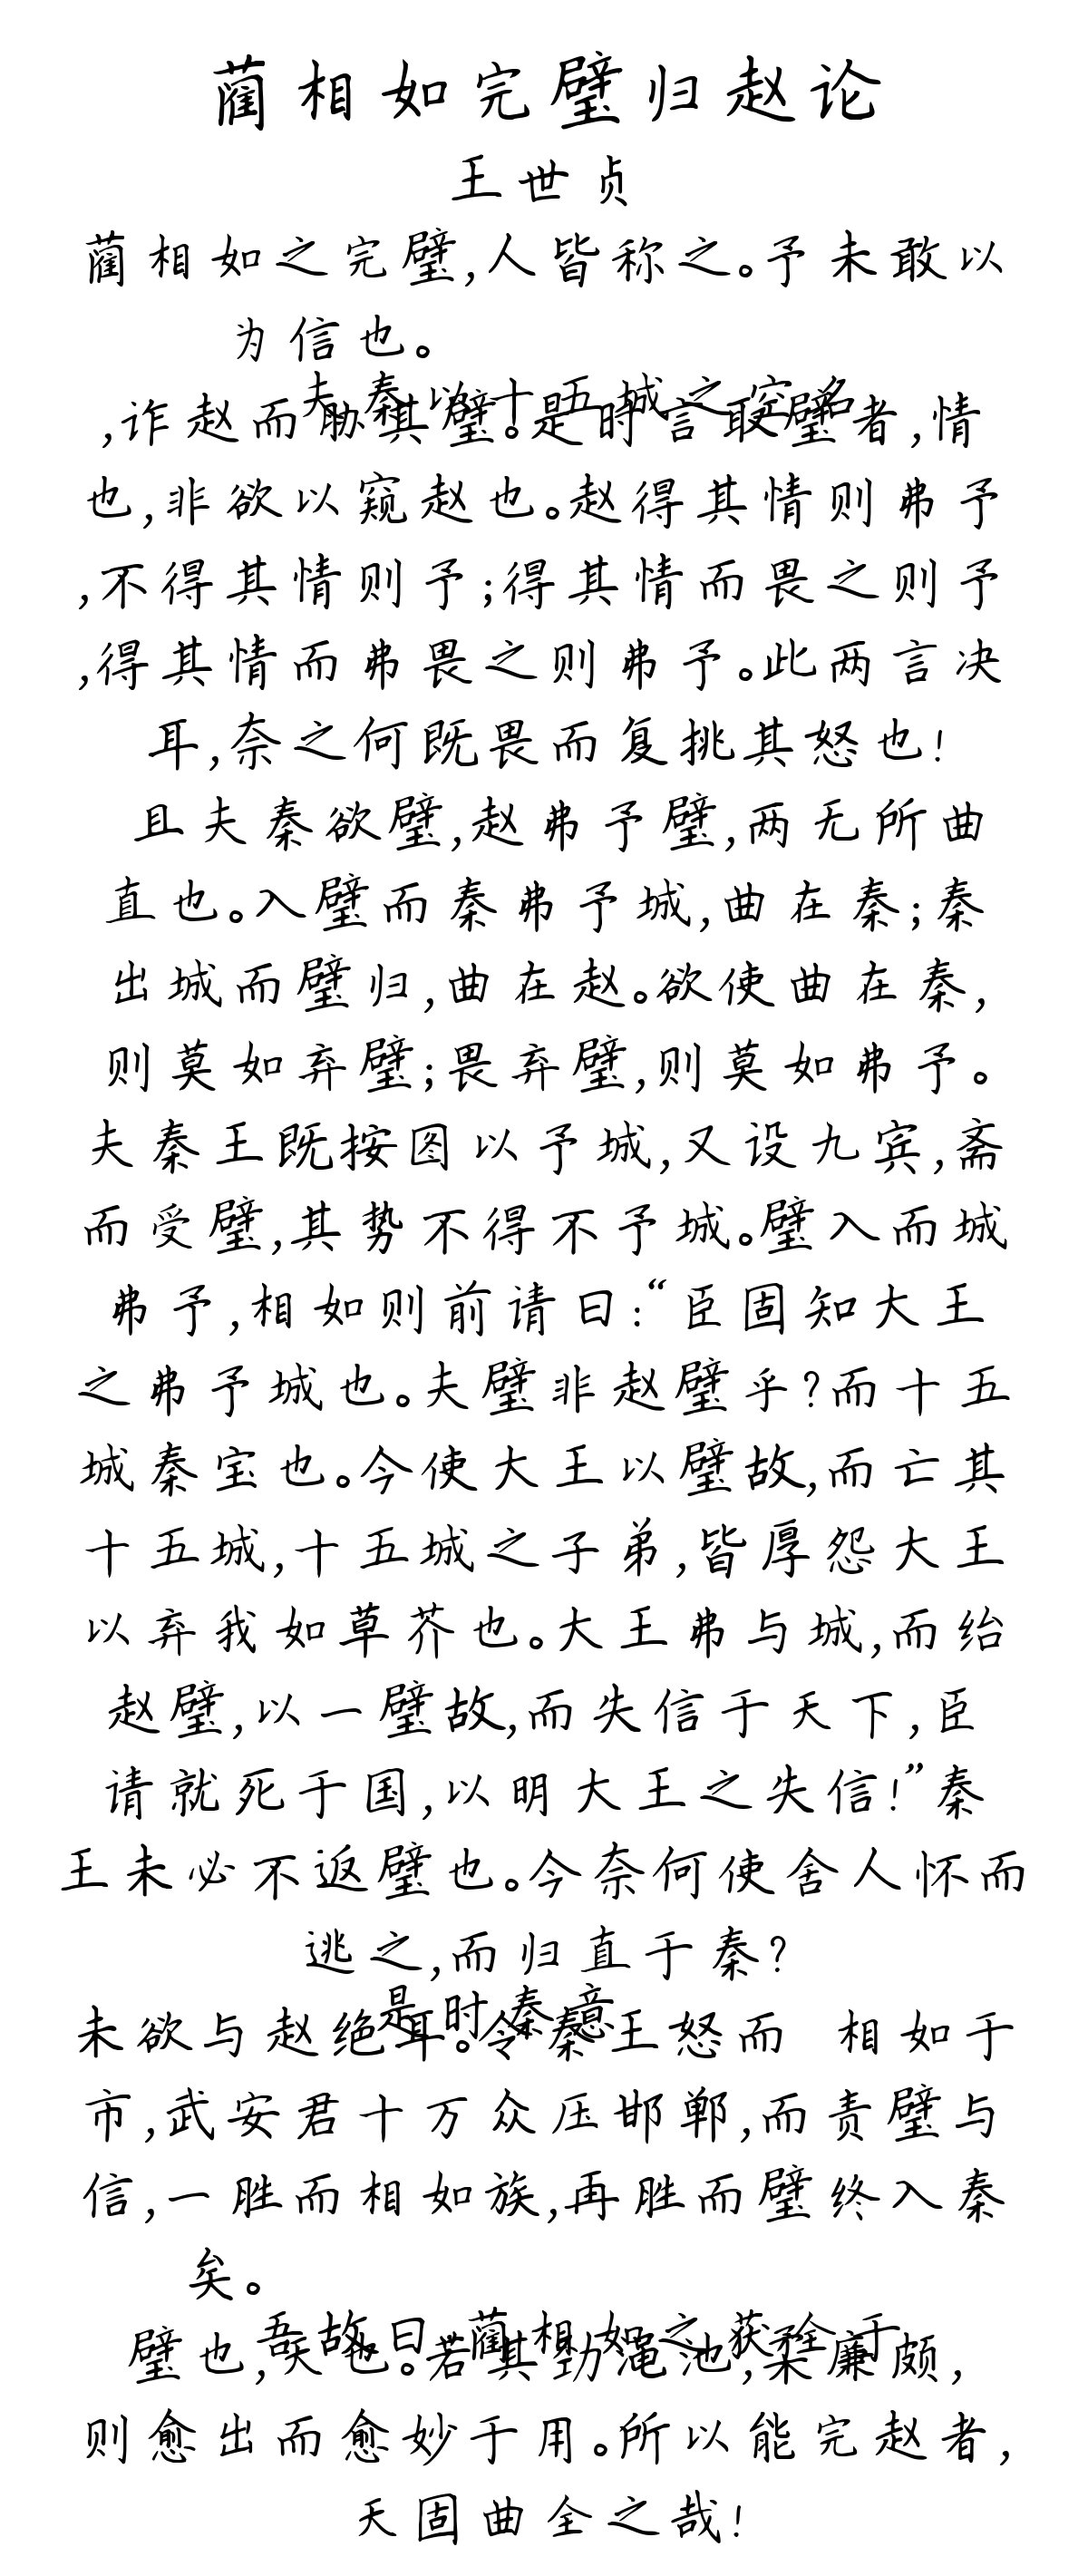 蔺相如完璧归赵论
王世贞
蔺相如之完璧,人皆称之。予未敢以
为信也。
夫秦以十五城之空名
,诈赵而胁其璧。是时言取璧者,情
也,非欲以窥赵也。赵得其情则弗予
,不得其情则予;得其情而畏之则予
,得其情而弗畏之则弗予。此两言决
耳,奈之何既畏而复挑其怒也!
且夫秦欲璧,赵弗予璧,两无所曲
直也。入璧而秦弗予城,曲在秦;秦
出城而璧归,曲在赵。欲使曲在秦,
则莫如弃璧;畏弃璧,则莫如弗予。
夫秦王既按图以予城,又设九宾,斋
而受璧,其势不得不予城。璧入而城
弗予,相如则前请曰:“臣固知大王
之弗予城也。夫璧非赵璧乎?而十五
城秦宝也。今使大王以璧故,而亡其
十五城,十五城之子弟,皆厚怨大王
以弃我如草芥也。大王弗与城,而绐
赵璧,以一璧故,而失信于天下,臣
请就死于国,以明大王之失信!”秦
王未必不返璧也。今奈何使舍人怀而
逃之,而归直于秦?
是时秦意
未欲与赵绝耳。令秦王怒而 相如于
市,武安君十万众压邯郸,而责璧与
信,一胜而相如族,再胜而璧终入秦
矣。
吾故曰:蔺相如之获全于
璧也,天也。若其劲渑池,柔廉颇,
则愈出而愈妙于用。所以能完赵者,
天固曲全之哉!